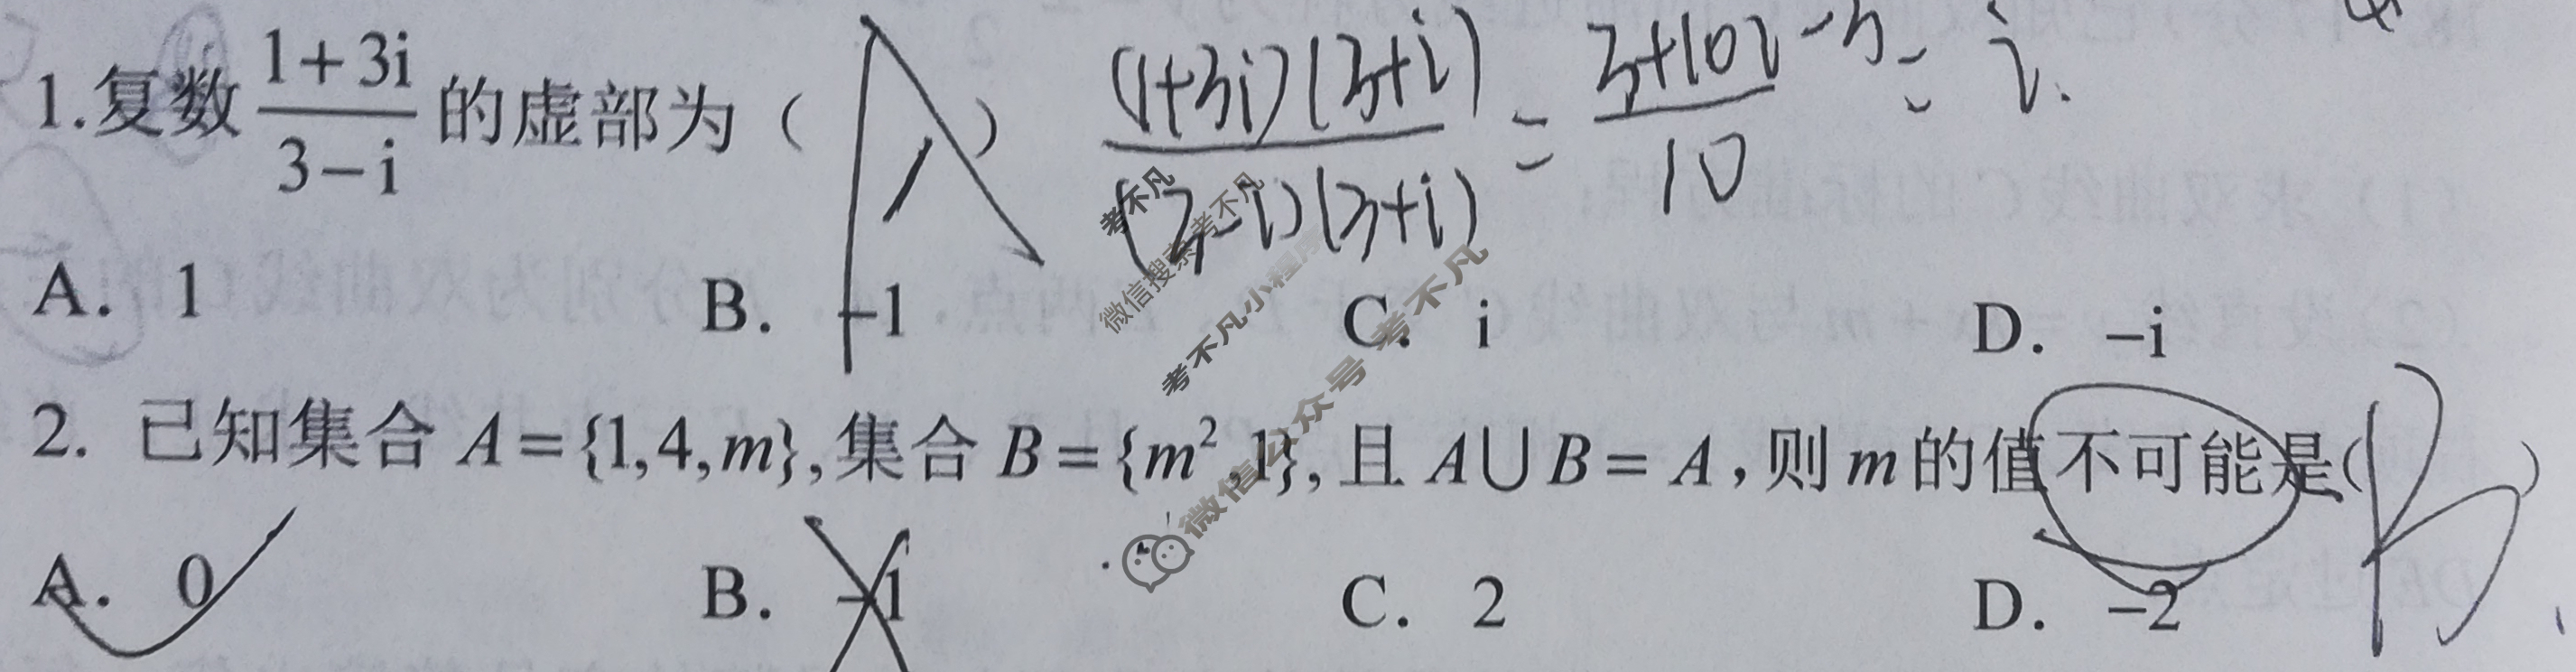 1.复数 (1+3i)/(3-i) 的虚部为( A ) ((1+3i)(3+i))/((3-i)(3+i)) = (3+10i-3)/10 = i.
A. 1 B. -1 C. i D. -i
2. 已知集合 A={1,4,m},集合 B={m²,1},且 A∪B=A,则 m 的值不可能是( B )
A. 0 B. -1 C. 2 D. -2
考不凡
微信搜索考不凡
考不凡小程序
微信公众号 考不凡